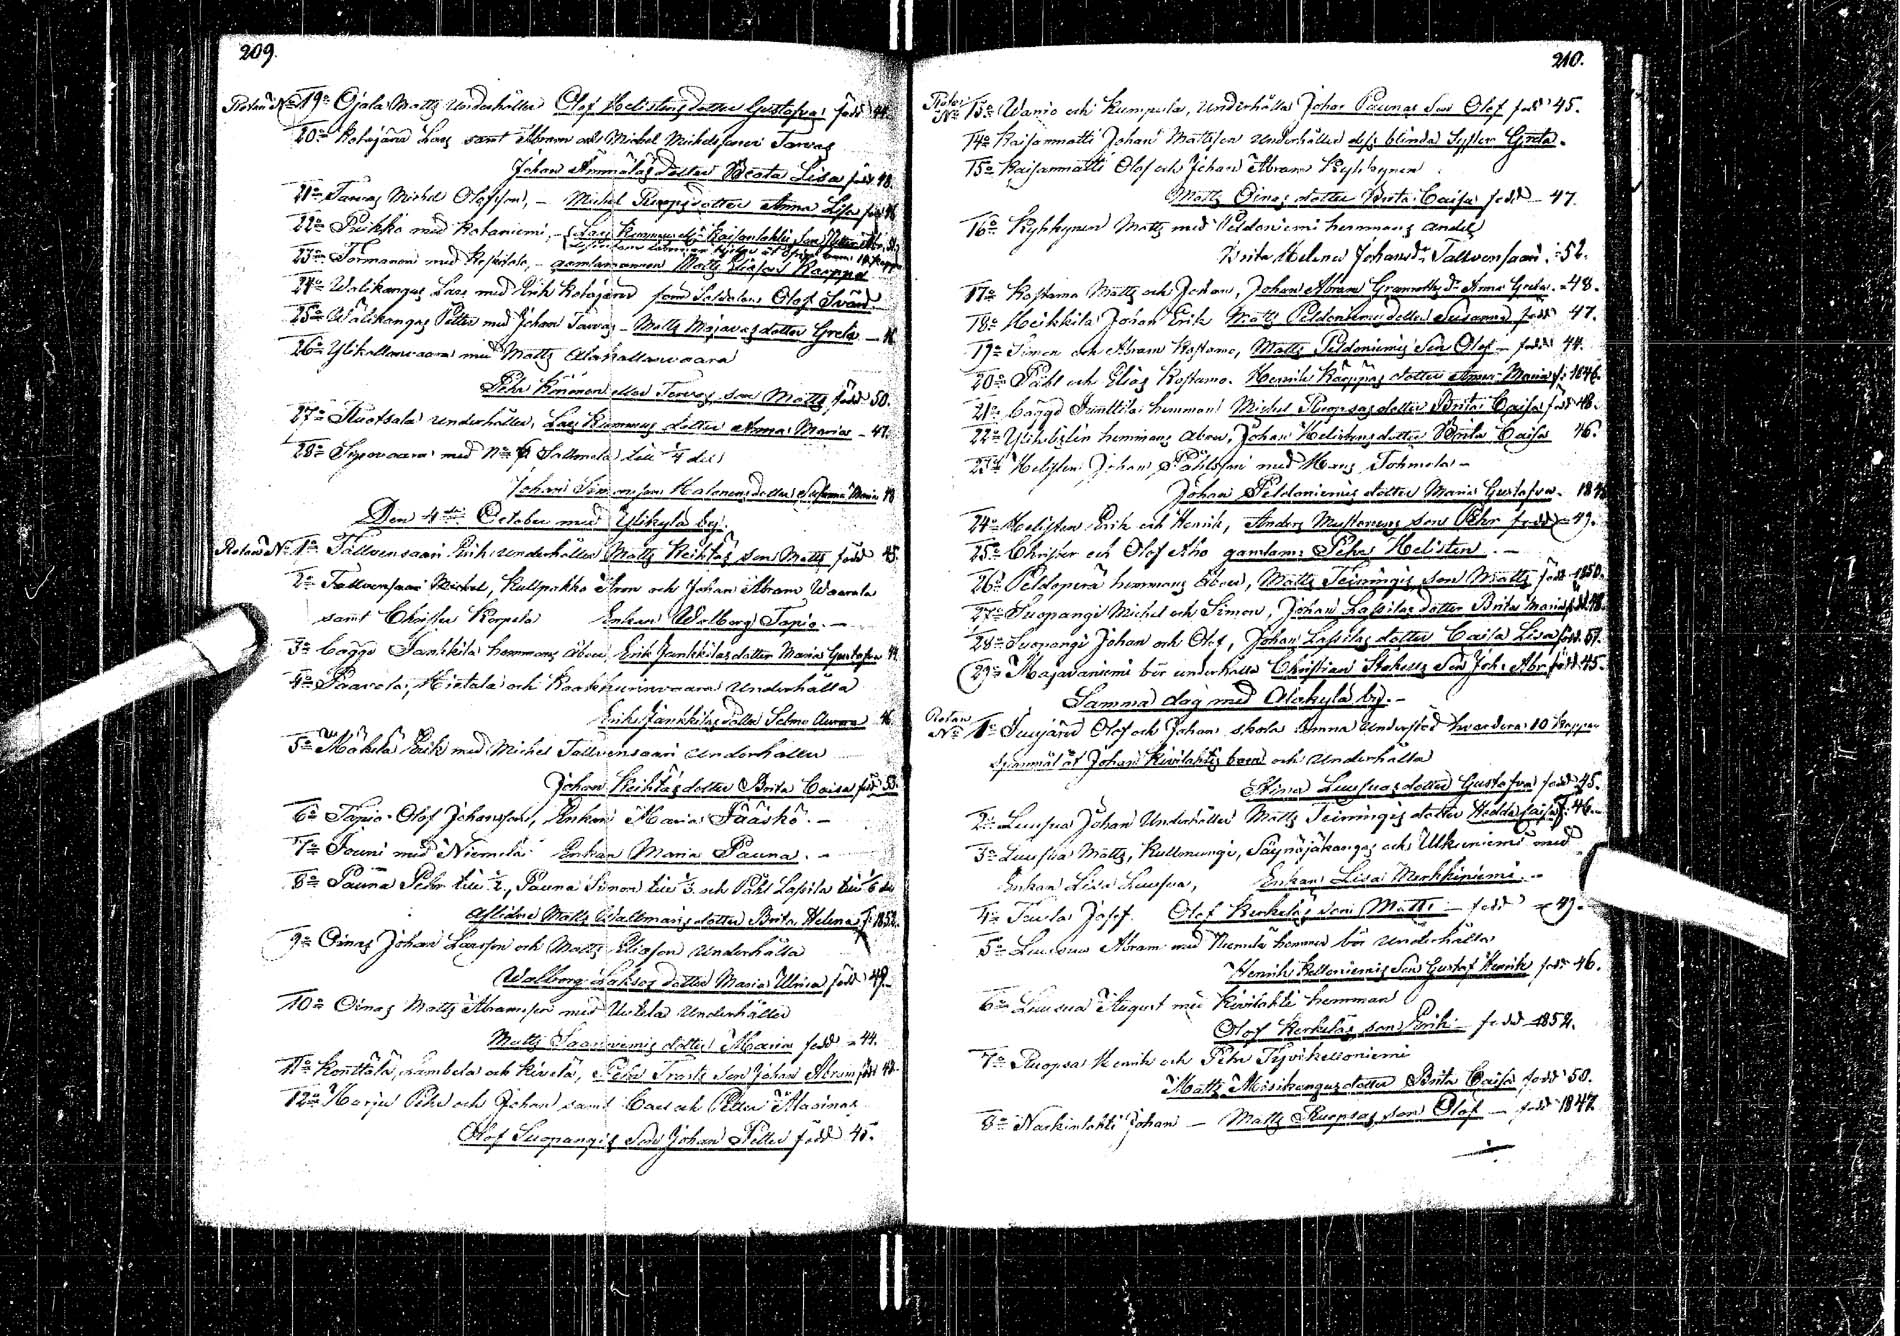 209.
Rotan No 19o Ojala Matts underhåller Olof Helistens dotter Gustafva född 44.
20o Kotajärvi Lars samt Abram och Michel Michelssöner Tarvas
Johan Ämmäläs dotter Beata Lisa född 48.
21o Tarvas Michel Olofsson, – Michel Ruopsas dotter Anna Lisa född 46
22o Puikko med Kotaniemi, – Lars Kummus
23o Tormanen med – gamla mannen Matts Eliasson Karppa
24o Walikangas Lars med Erik Kotajärvi förre Soldaten Olof Svärd
25o Walikangas Petter med Johan Tarvas – Matts Majavas dotter Greta – 46
26o Ylikallovaara med Matts Alakallovaara
Pehr Könönen eller Tarvas son Matts född 50.
27o Ruotsala underhåller, Lars Kummus dotter Anna Maria – 47.
28o Sipovaara med No 6 Sallmela till 1/4 del
Johan Simonsson Halonens dotter Susanna Maria 48
Den 4de October med Ylikylä by.
Rotan No 1o Tallvensaari Erik underhåller Matts Keihtäs son Matts född 45.
2o Tallvensaari Michel, Kullpakko Aron och Johan Abram Waarala
samt Christer Korpela Enkan Walborg Tapio. –
3o Caggo Jankkila hemmans åboer, Erik Jankkilas dotter Maria Gustafva 44
4o Paavola, Hietala och Kaakkurivaara underhålla
Erik Jankkilas dotter Selma Aurora 46.
5o Mäkelä Erik med Michel Tallvensaari underhåller
Johan Keihtäs dotter Brita Caisa född 53.
6o Tapio Olof Johansson, Enkan Maria Pääskö. –
7o Jouni med Niemelä Enkan Maria Pauna. –
8o Pauna Pehr till 1/2, Pauna Simon till 1/3 och Påhl Lassila till 1/6 del
Aflidne Matts Waltmaris dotter Brita Helena f: 1852.
9o Oinas Johan Larsson och Matts Eliasson underhålla
Walborg Laksos dotter Maria Ulrica född 49.
10o Oinas Matts Abramsson med Uutela underhåller
Matts Saarinemis dotter Maria född – 44.
11o Konttälä, Rämbelä och Kivelä, Pehr Trasts son Johan Abram född 48.
12o Harju Pehr och Johan samt Lars och Petter Alaoinas
Olof Suopangis son Johan Petter född 45.
210.
Rotan No 13o Wanio och Kumpula, underhålla Johan Paunas son Olof född 45.
14o Kaisanmatti Johan Mattsson underhåller dess blinda Syster Greta.
15o Kaisanmatti Olof och Johan Abram Kyhkynen
Matts Oinas dotter Brita Caisa född – 47.
16o Kyhkynen Matts med Peldoniemi hemmans andel
Brita Helena Johansdr Tallvensaari. – 52.
17o Kostama Matts och Johan, Johan Abram Grannotts dr Anna Greta. – 48.
18o Heikkilä Johan Erik Matts Peldoniemis dotter Susanna född 47.
19o Simon och Abram Kostamo, Matts Peldoniemis son Olof – född 44.
20o Påhl och Elias Kostamo. Henrik Karppas dotter Anna Maria f: 1846.
21o Caggo Junttila hemman Michel Ruopsas dotter Brita Caisa född 48.
22o hemmans åboer, Johan Helistens dotter Brita Caisa 46.
23o Helisten Johan Påhlsson med Hans Tohmola –
Johan Peldoniemis dotter Maria Gustafva.
24o Helisten Erik och Henrik, Anders Mustonens son Pehr född – 49.
25o Christer och Olof Aho gamlan: Pehr Helisten. –
26o Peldoperä hemmans åboer, Matts Teiningis son Matts född 1850.
27o Suopangi Michel och Simon, Johan Lassilas dotter Brita Maria född 48.
28o Suopangi Johan och Olof, Johan Lassilas dotter Caisa Lisa född 51.
29o Majavaniemi bör underhålla Christian Stakells son Joh: Abr. född 45.
Samma dag med Alakylä by. –
Rotan No 1o Suojärvi Olof och Johan skola lemna understöd hvardera 10 kappar
spannmål åt Johan Kivilahtis barn och underhålla
Stina Luusuas dotter Gustafva född 45.
2o Luusua Johan underhåller Matts Teiningis dotter Hedda Caisa f: 46. –
3o Luusua Matts, Kullervongi, Säynäjäkangas och Ulkuniemi med
Enkan Lisa Luusua, Enkan Lisa Merkkiniemi. –
4o Tuula Josef. Olof Kerkeläs son Matti – född – 49. –
5o Luusua Abram med Niemelä hemman bör underhålla
Henrik Kelloniemis son Gustaf Henrik född 46.
6o Luusua August med Kivilahti hemman
Olof Kerkeläs son Erik – född 1852.
7o Ruopsa Henrik och Pehr Hyvikelloniemi
Matts Misikangas dotter Brita Caisa född 50.
8o Narkinlahti Johan – Matts Ruopsas son Olof – född 1847.